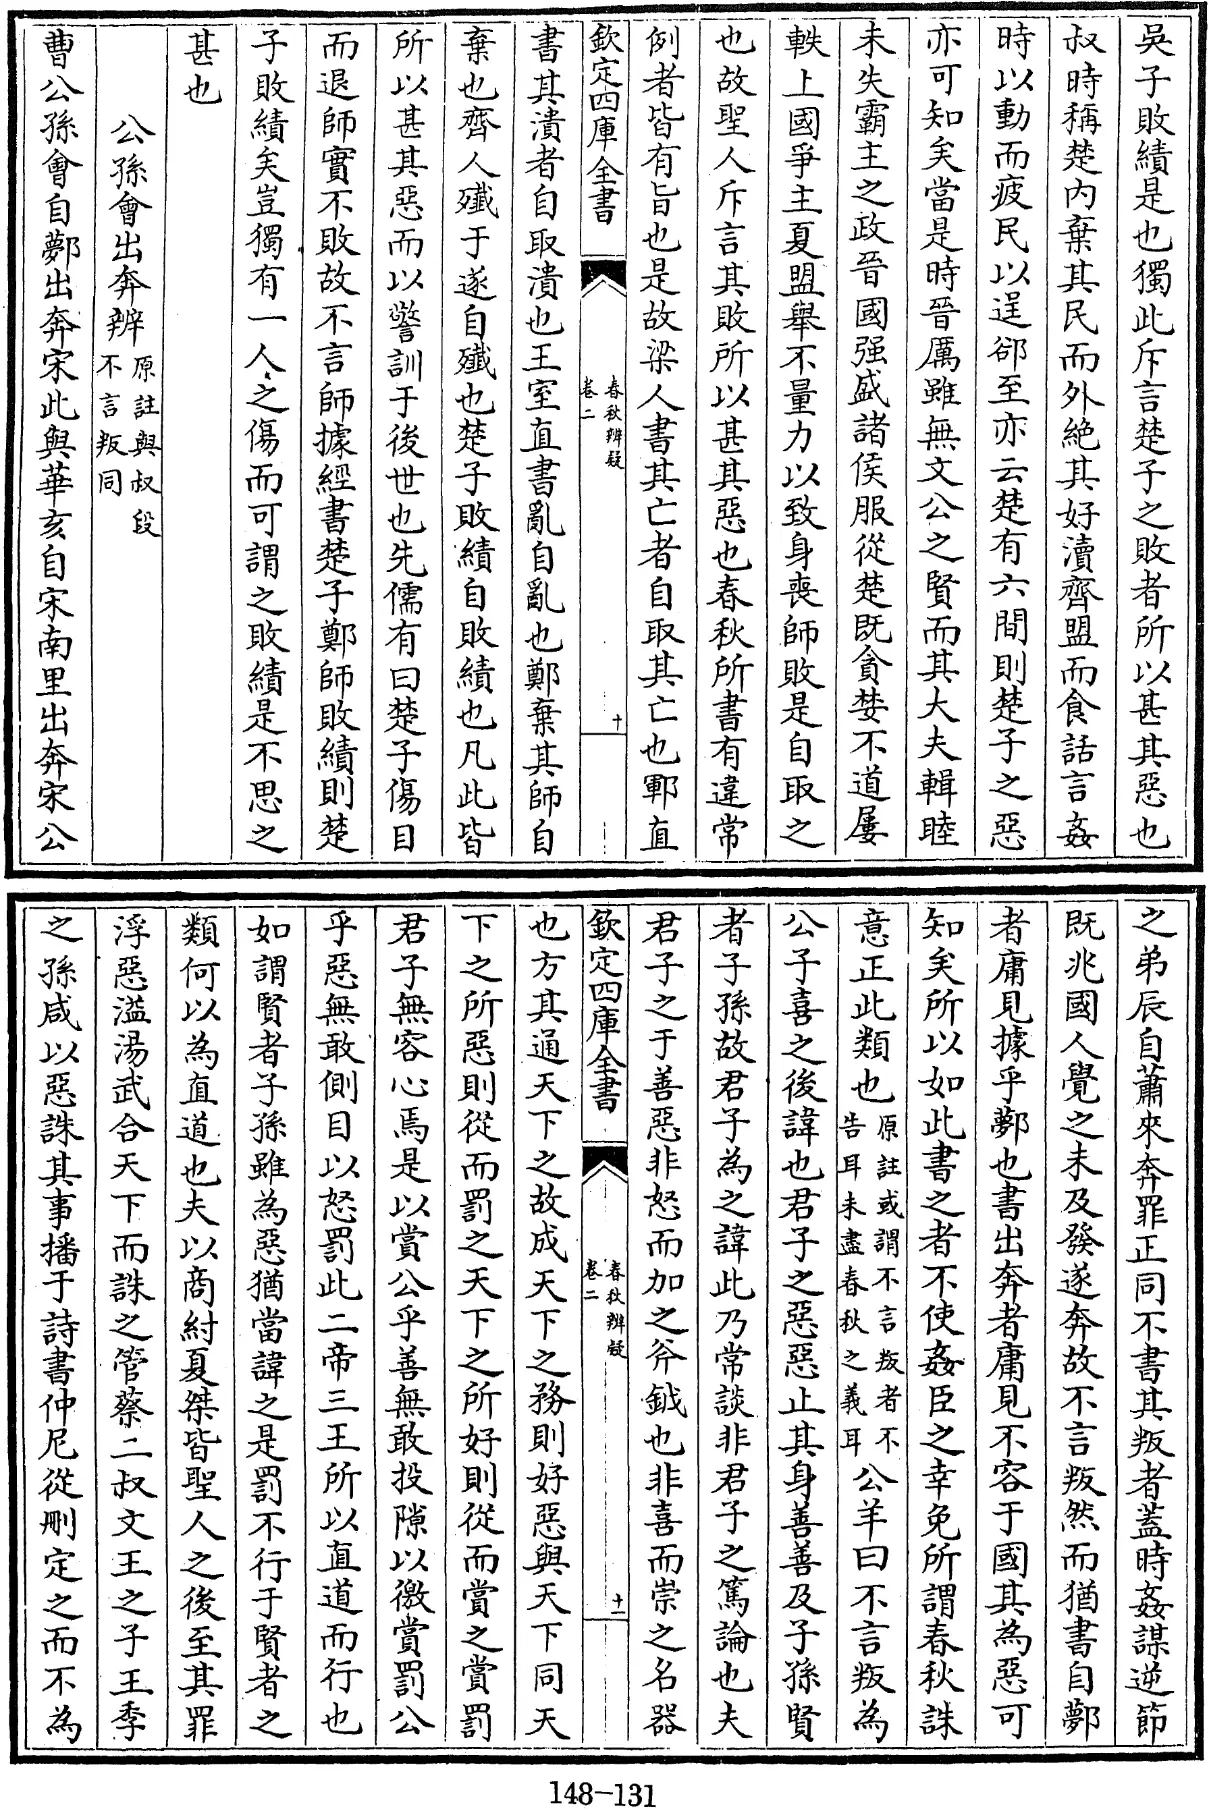 吳子敗績是也獨此斥言楚子之敗者所以甚其惡也
叔時稱楚内棄其民而外絶其好瀆齊盟而食話言姦
時以動而疲民以逞郤至亦云楚有六間則楚子之惡
亦可知矣當是時晉厲雖無文公之賢而其大夫輯睦
未失霸主之政晉國强盛諸侯服從楚既貪婪不道屢
軼上國爭主夏盟舉不量力以致身喪師敗是自取之
也故聖人斥言其敗所以甚其惡也春秋所書有違常
例者皆有旨也是故梁人書其亡者自取其亡也鄆直
欽定四庫全書
春秋辨疑
卷二
十
書其潰者自取潰也王室直書亂自亂也鄭棄其師自
棄也齊人殲于遂自殲也楚子敗績自敗績也凡此皆
所以甚其惡而以警訓于後世也先儒有曰楚子傷目
而退師實不敗故不言師據經書楚子鄭師敗績則楚
子敗績矣豈獨有一人之傷而可謂之敗績是不思之
甚也
公孫會出奔辨
原註與叔段
不言叛同
曹公孫會自鄸出奔宋此與華亥自宋南里出奔宋公
之弟辰自蕭來奔罪正同不書其叛者蓋時姦謀逆節
既兆國人覺之未及發遂奔故不言叛然而猶書自鄸
者庸見據乎鄸也書出奔者庸見不容于國其為惡可
知矣所以如此書之者不使姦臣之幸免所謂春秋誅
意正此類也
原註或謂不言叛者不
告耳未盡春秋之義耳
公羊曰不言叛為
公子喜之後諱也君子之惡惡止其身善善及子孫賢
者子孫故君子為之諱此乃常談非君子之篤論也夫
君子之于善惡非怒而加之斧鉞也非喜而崇之名器
欽定四庫全書
春秋辨疑
卷二
十一
也方其通天下之故成天下之務則好惡與天下同天
下之所惡則從而罰之天下之所好則從而賞之賞罰
君子無容心焉是以賞公乎善無敢投隙以徼賞罰公
乎惡無敢側目以怒罰此二帝三王所以直道而行也
如謂賢者子孫雖為惡猶當諱之是罰不行于賢者之
類何以為直道也夫以商紂夏桀皆聖人之後至其罪
浮惡溢湯武合天下而誅之管蔡二叔文王之子王季
之孫咸以惡誅其事播于詩書仲尼從刪定之而不為
148-131